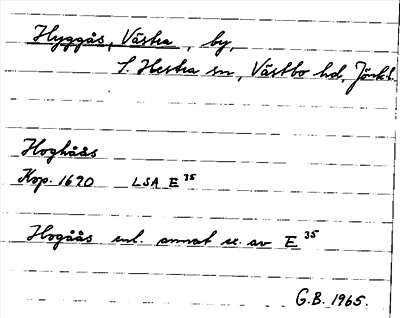 Hyggås, Västra, by,
S. Hestra sn, Västbo hd, Jönk.l.
Hoghåås
Kop. 1690 LSA E 35
Hogåås enl. annat ex. av E 35
G.B. 1965.